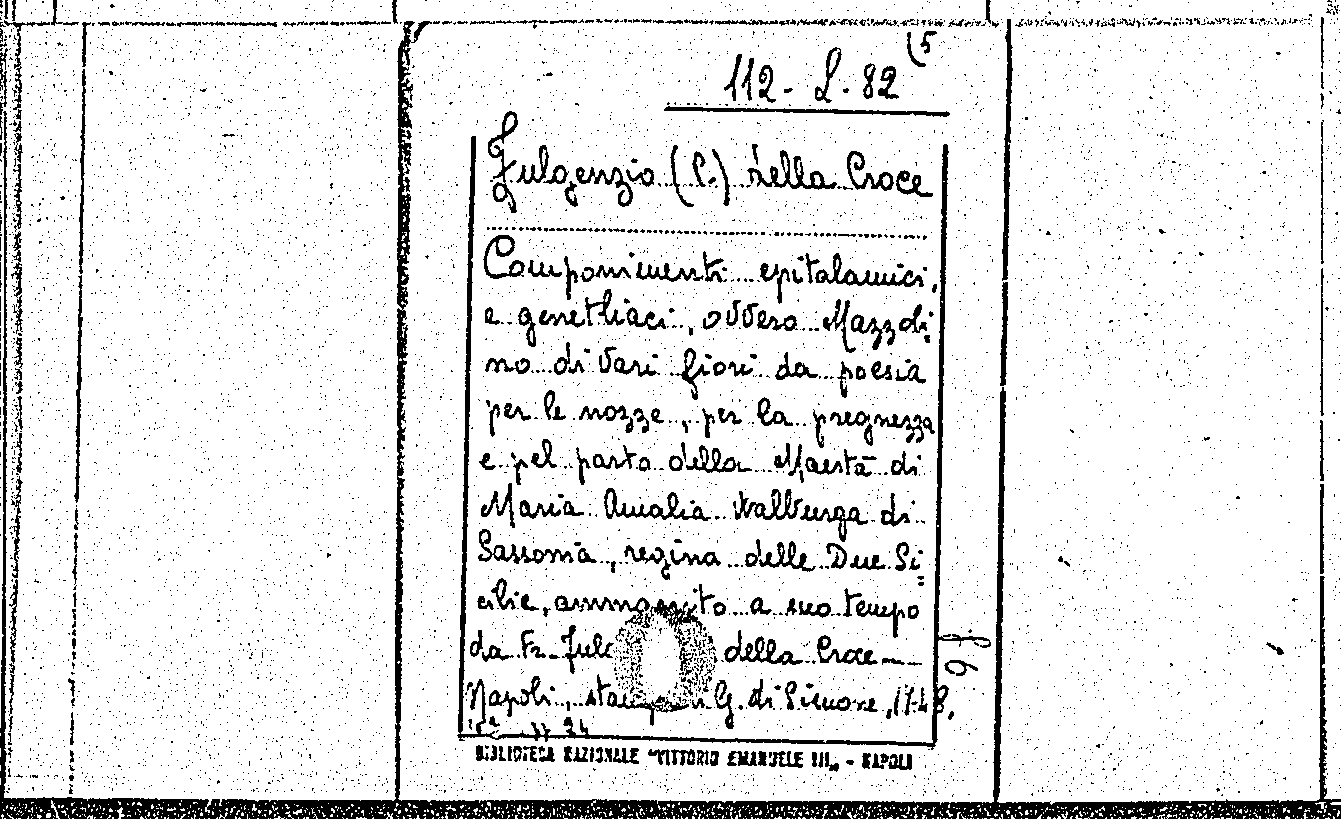 112 - L. 82 (5
Fulgenzio (P.) della Croce
Componimenti epitalamici,
e genetliaci, ovvero Mazzoli=
no di vari fiori da poesia
per le nozze, per la pregnezza
e pel parto della Maestà di
Maria Amalia Walburga di
Sassonia, regina delle Due Si=
cilie, ammannito a suo tempo
da Fr. Fulg della Croce
Napoli, stamp. di G. di Simone, 1748,
BIBLIOTECA NAZIONALE "VITTORIO EMANUELE III„ - NAPOLI